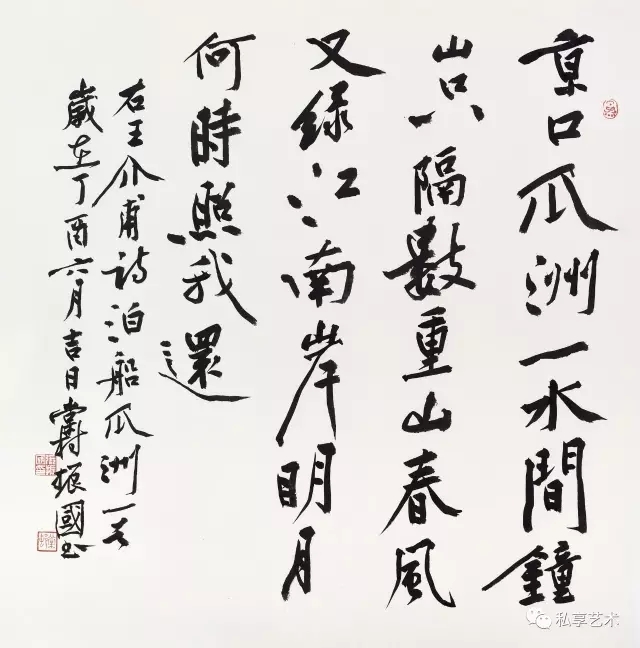 京口瓜洲一水間鐘
山只隔數重山春風
又緑江南岸明月
何時照我還
右王介甫诗泊船瓜洲一首
歲在丁酉六月吉日振國书
私享艺术